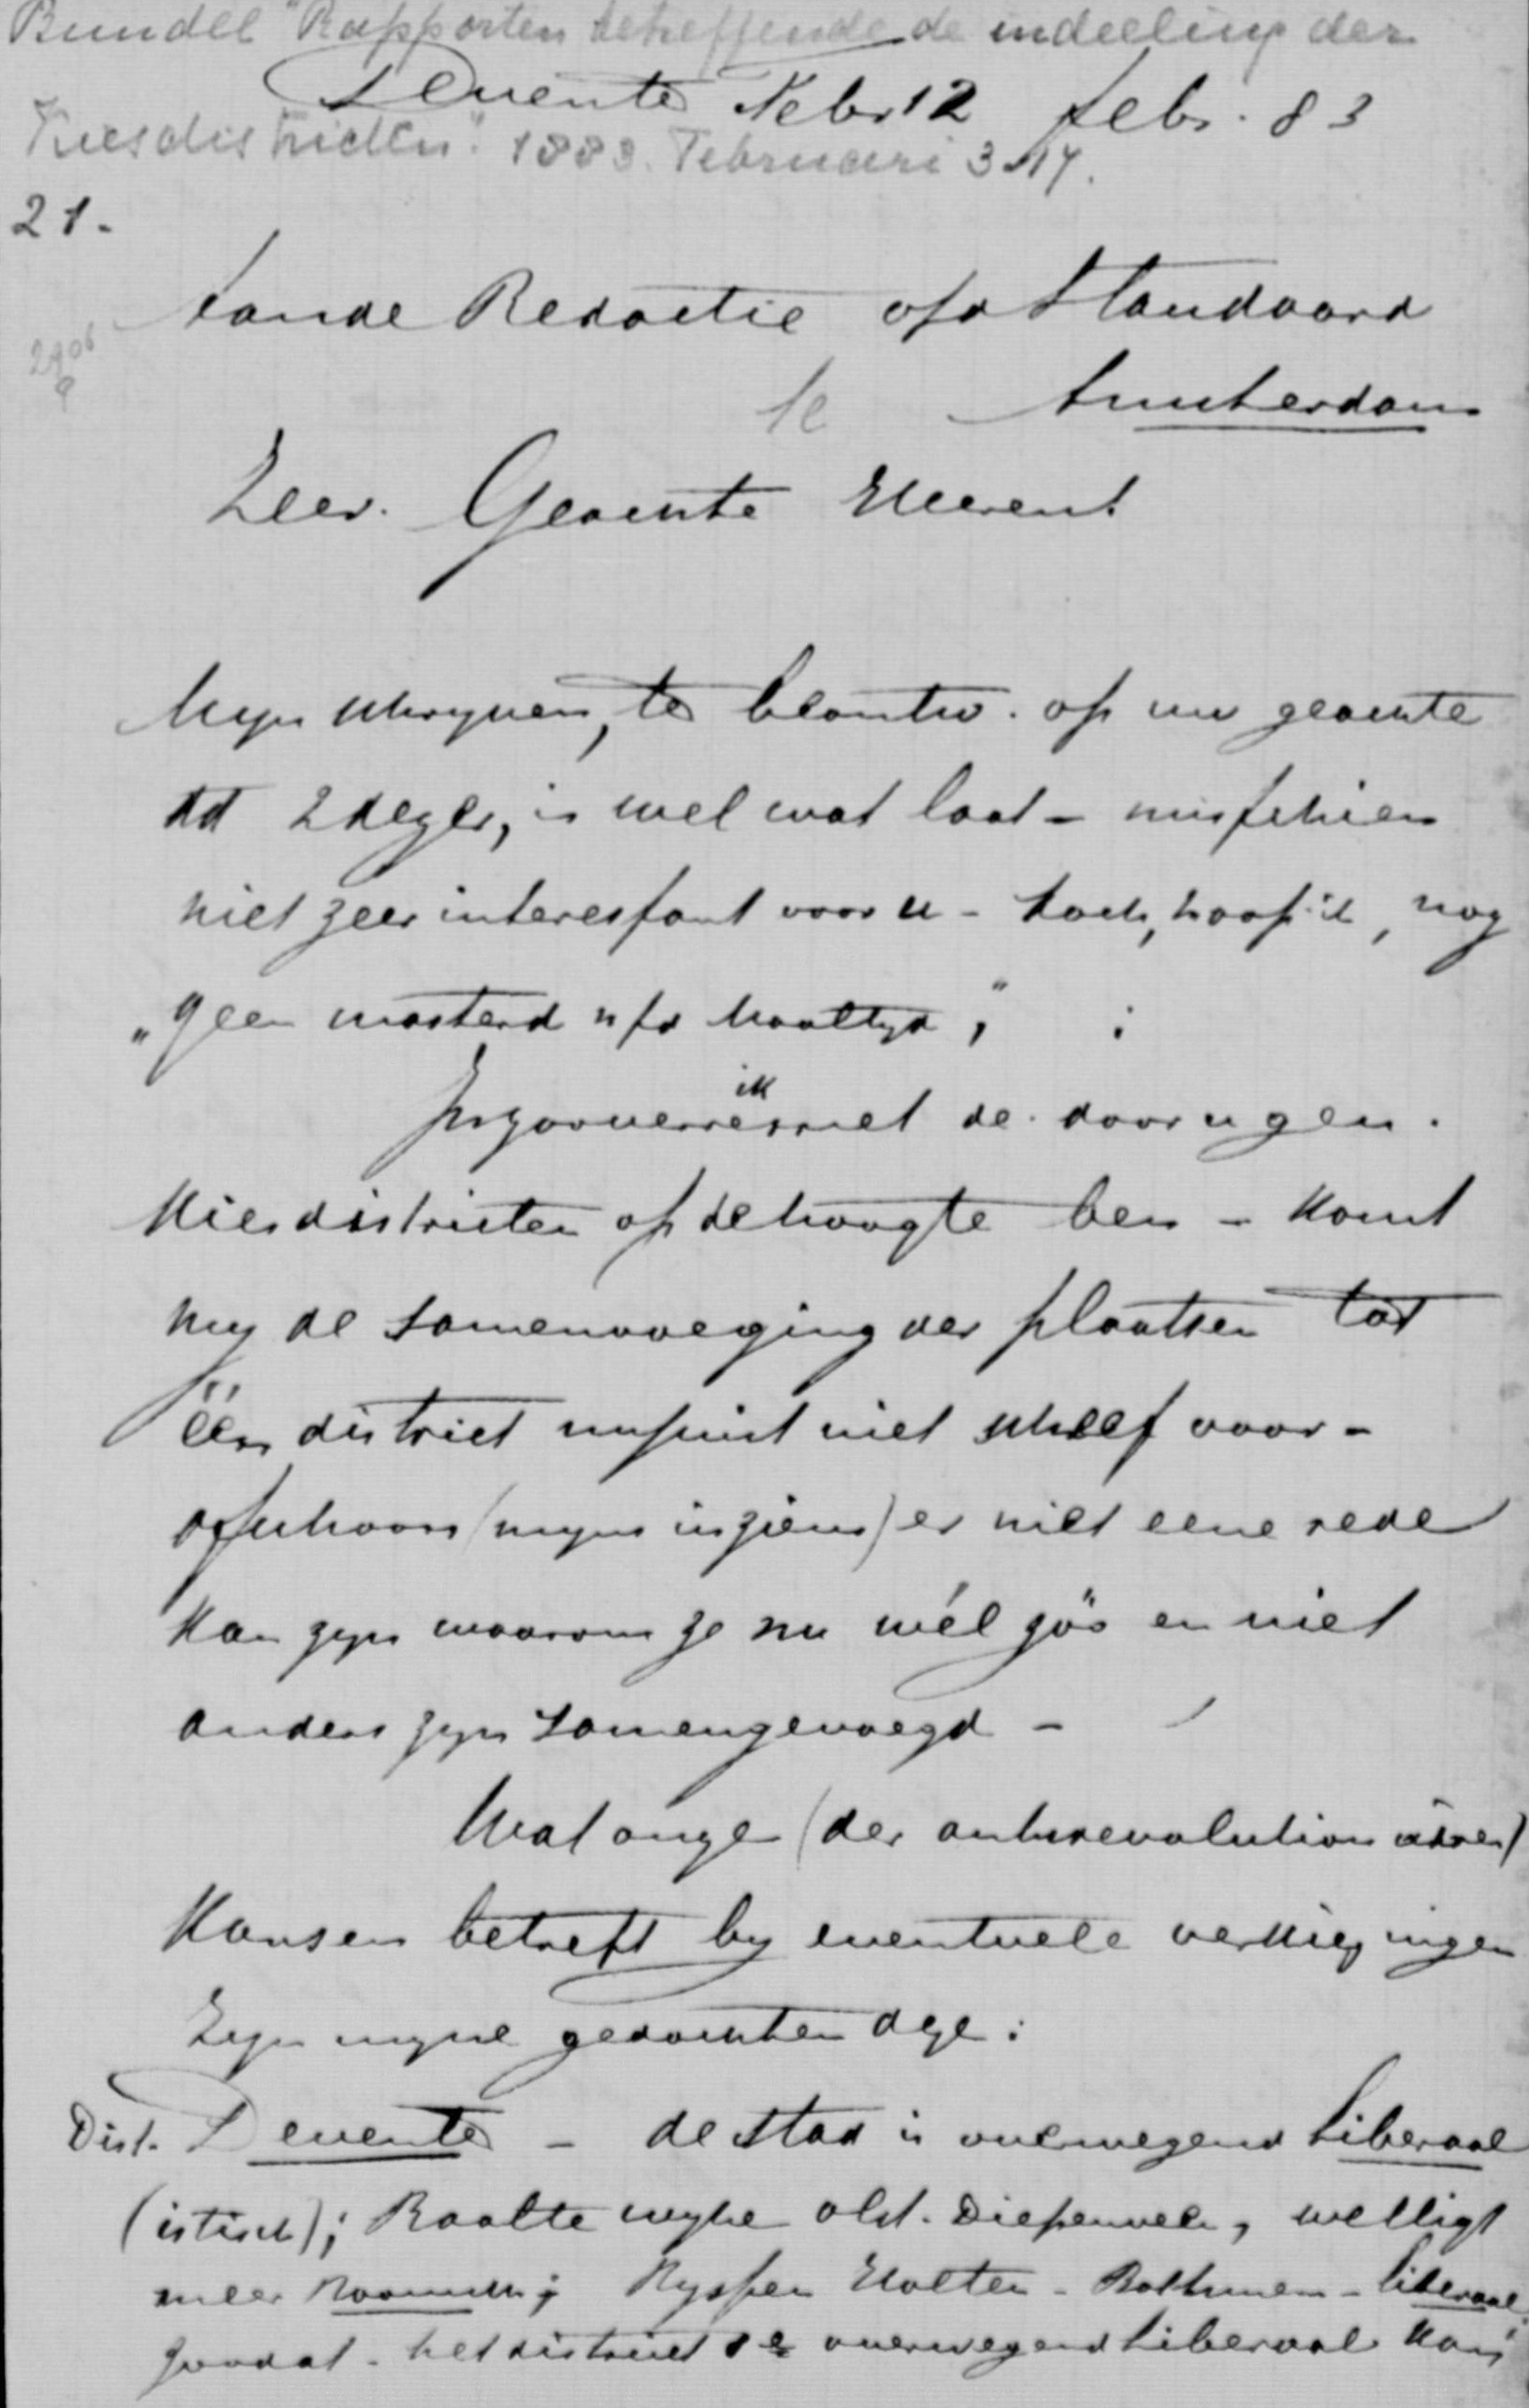 Bundel "Rapporten betreffende de indeeling der
Deventer Febr 12 febr. 83
Kiesdistricten". 1883. Februari 3-17.
21.
Aan de Redactie v/d Standaard
2906
te Amsterdam
Zeer Geachte Heeren!
Mijn schrijven, ter beantw. op uw geachte
dd 2 dezer, is wel wat laat - misschien
niet zeer interessant voor u - toch, hoop ik, nog
"geen mosterd n/d maaltyd,"
In zooverre ik met de door u gen.
Kiesdistricten op de hoogte ben - komt
my de samenvoeging der plaatsen tot
één district niet scheef voor -
ofschoon (mijns inziens) er niet eene rede
kan zyn waarom ze nu wél zóó en niet
anders zyn samengevoegd -
Wat onze (der antirevolutionairen)
Kansen betreft by eventuele verkiezingen
Zyn myne gedachten deze:
Dist. Deventer - de stad is overwegend liberaal
(istisch); Raalte wyhe olst. Diepenveen, welligt
meer Roomsch; Ryssen Holten - Bathmen - liberaal
zoodat het district overwegend liberaal kan